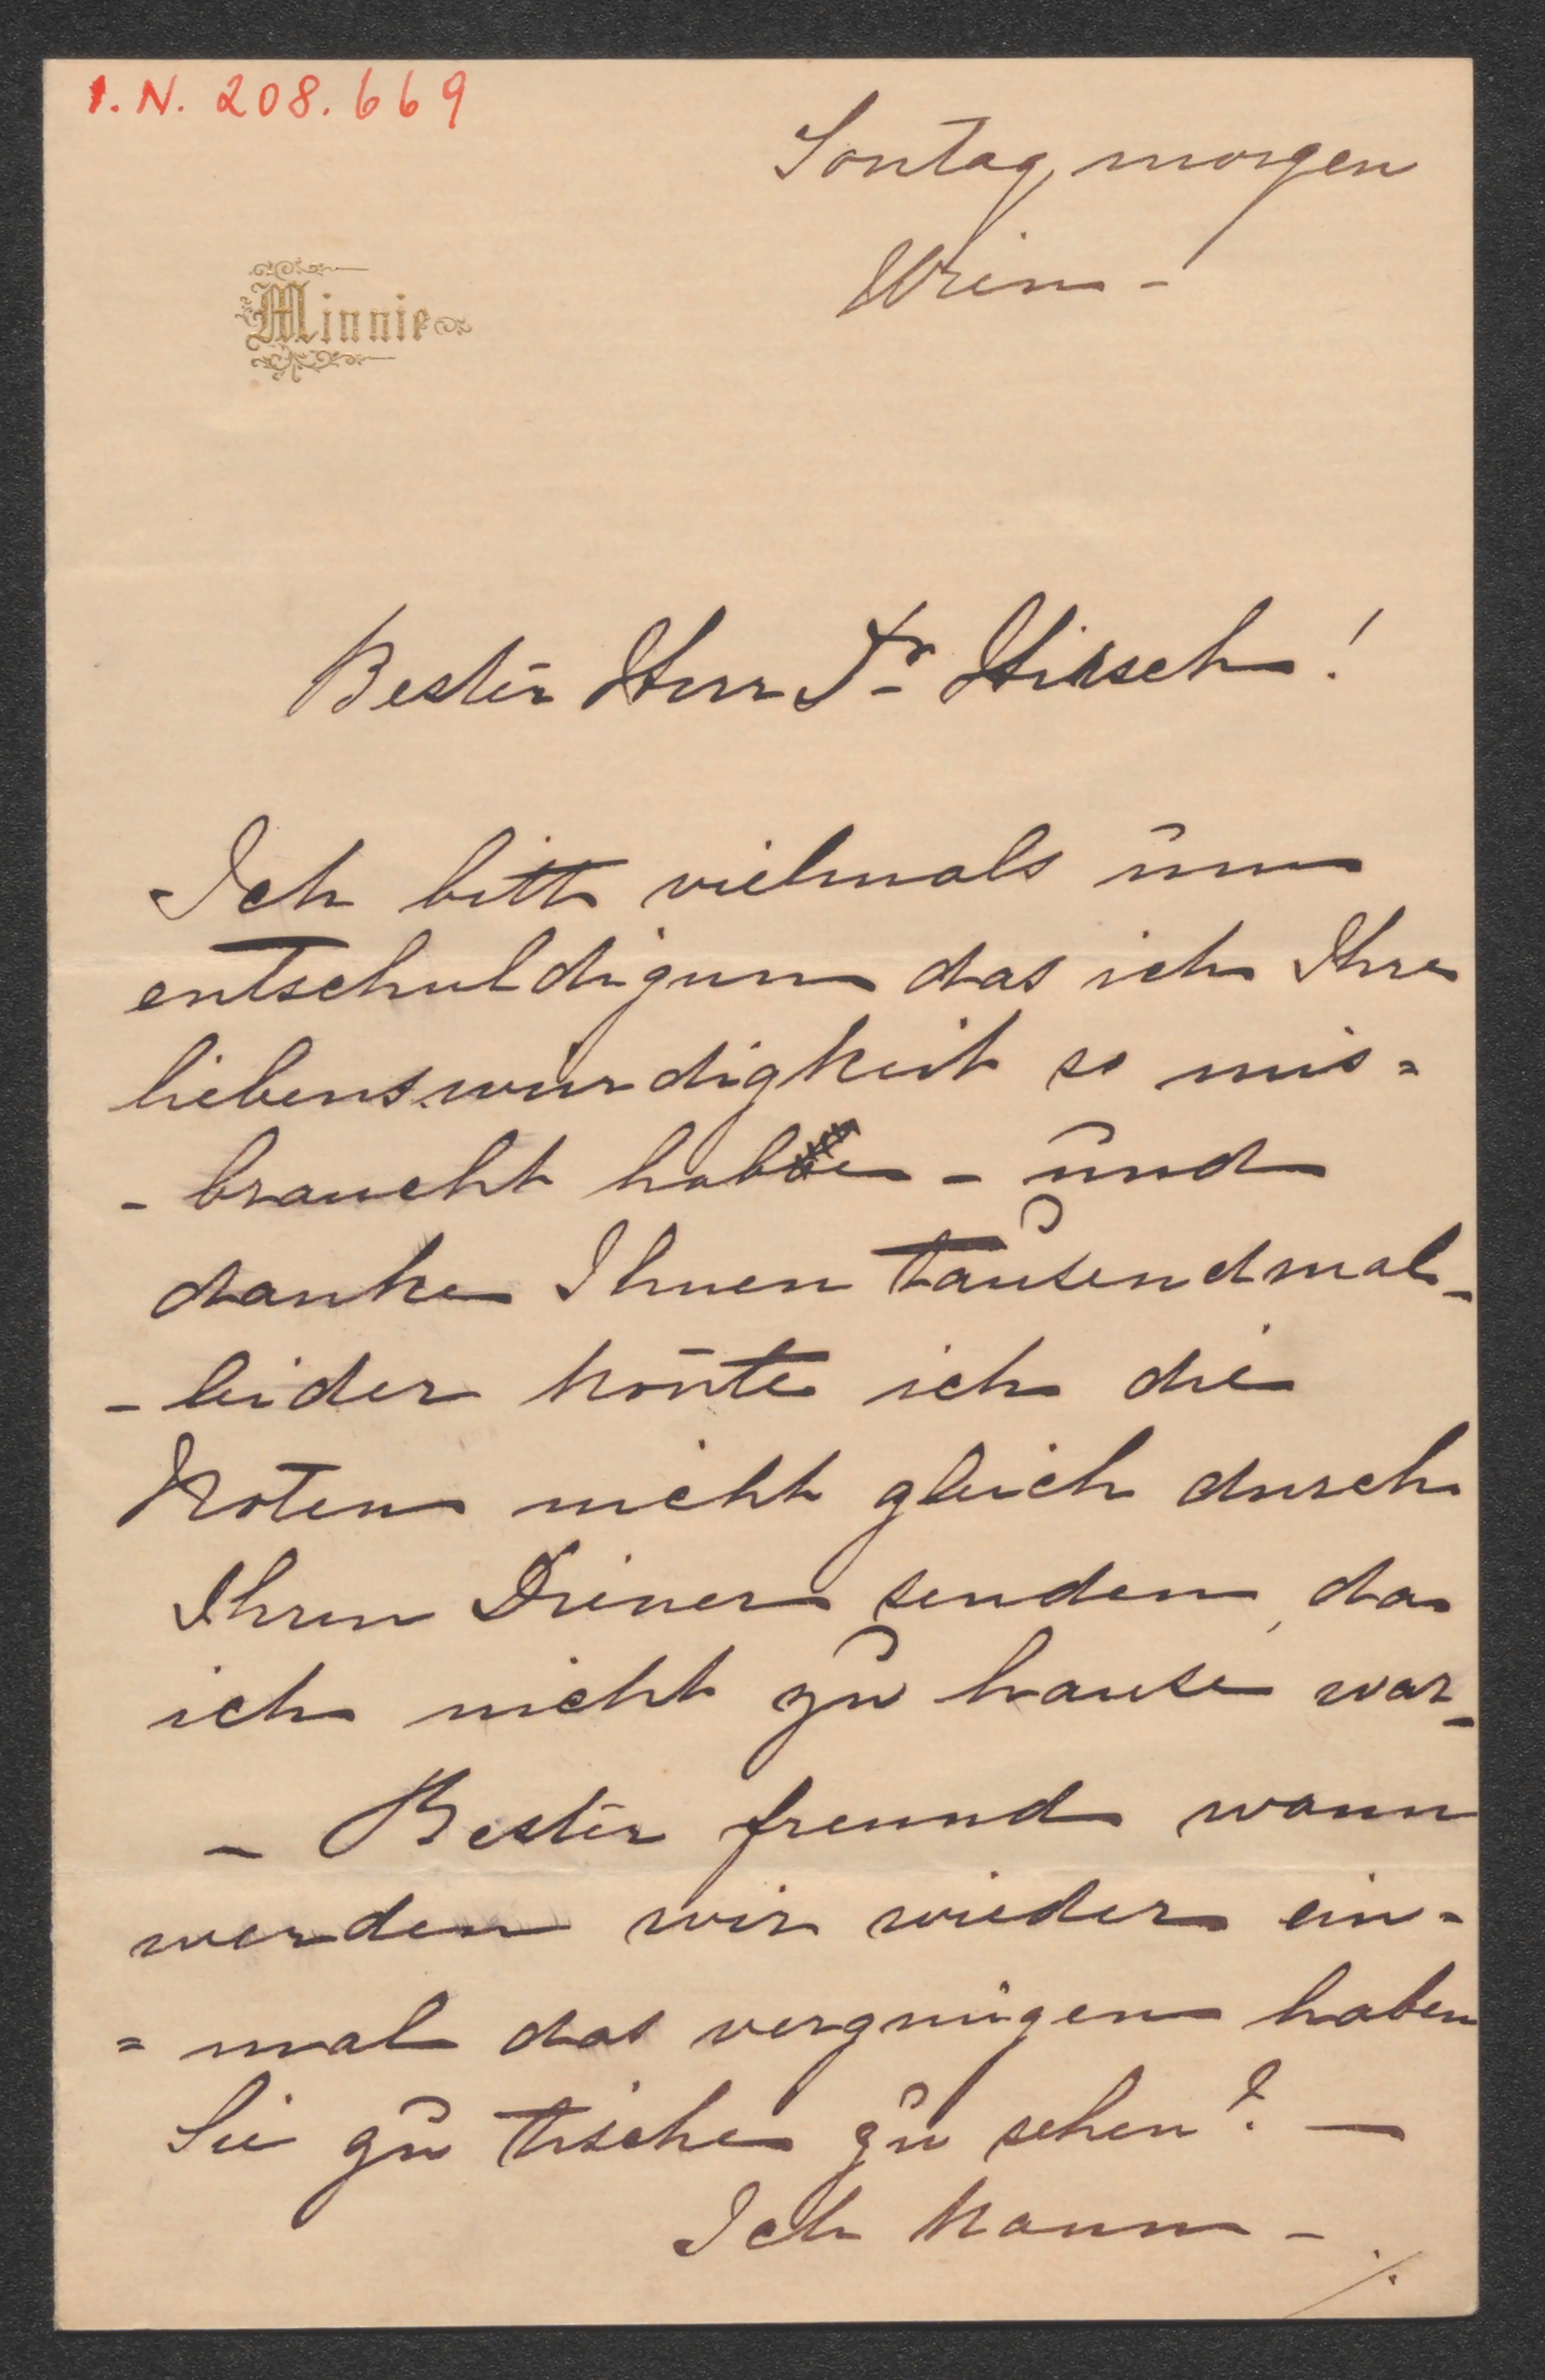 I.N. 208.669
Sontag morgen
Wien -
Minnie
Bester Herr Dr Hirsch!
Ich bitte vielmals um
entschuldigum das ich Ihre
liebenswürdigkeit so mis=
- braucht habe - und
danke Ihnen tausendmal -
- leider kon̄te ich die
Noten nicht gleich durch
Ihren Diener senden, da
ich nicht zu hause war -
- Bester freund wann
werden wir wieder ein=
= mal das vergnügen haben
Sie zu tische zu sehen? —
Ich kann -
./.